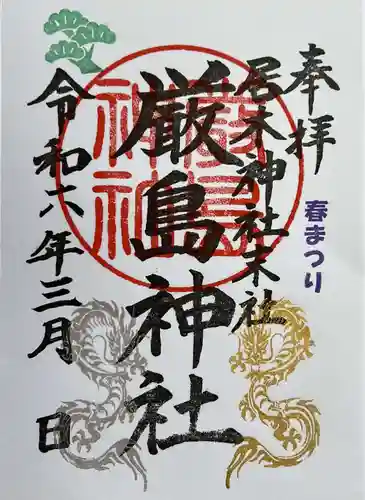 奉拝
春まつり
居木神社末社
厳島神社
令和六年三月 日
嚴島
神社